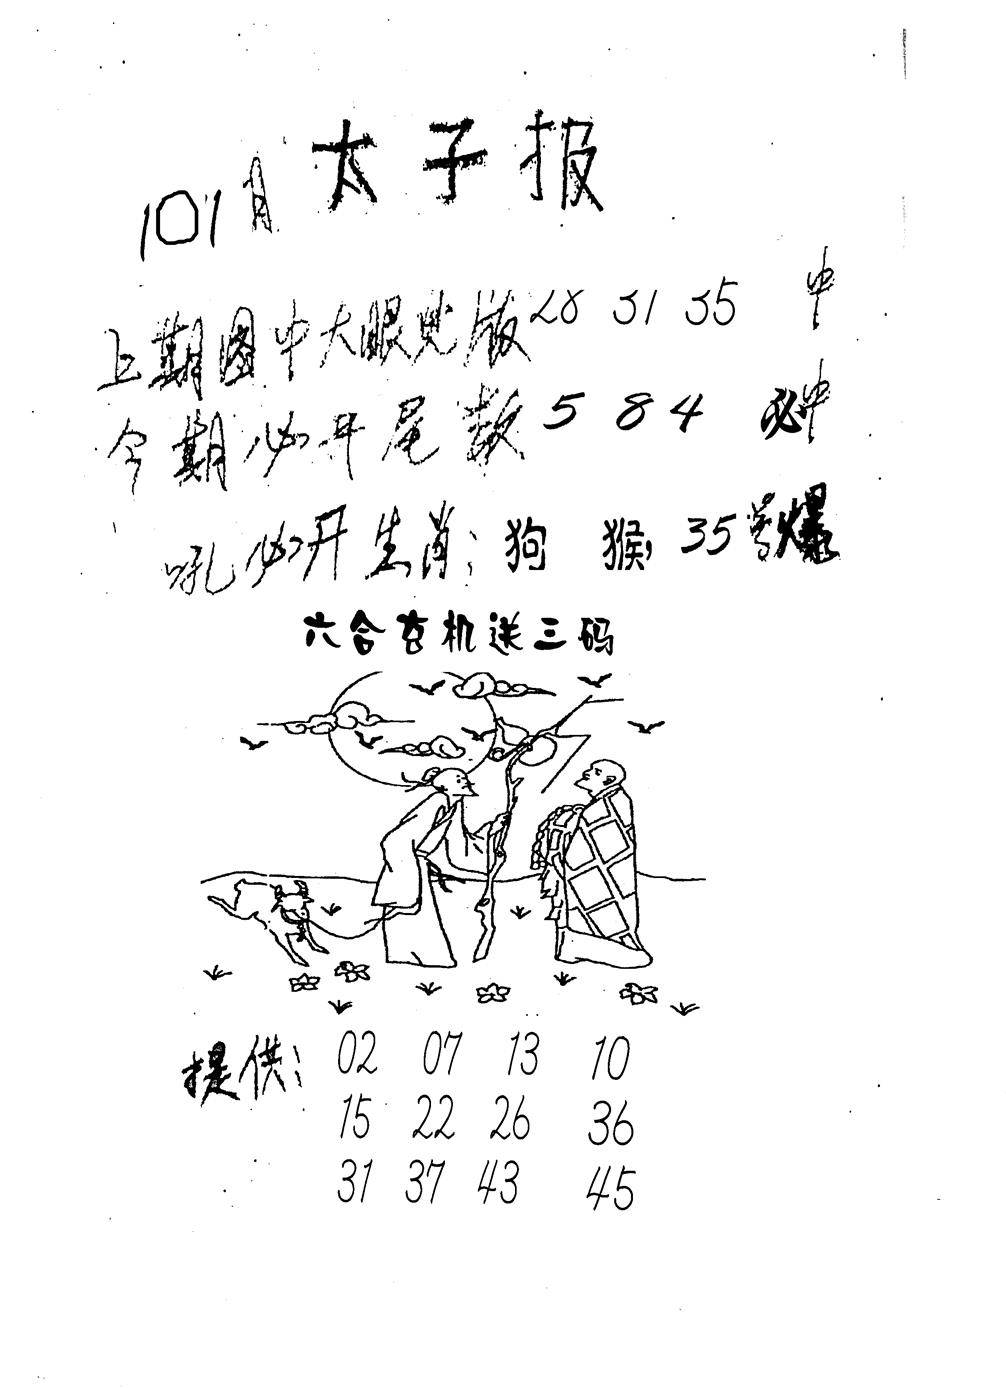 太子报
101月
上期图中大眼处版28 31 35 中
今期必开尾数5 8 4 必中
吼必开生肖：狗 猴，35号爆
六合玄机送三码
提供： 02 07 13 10
15 22 26 36
31 37 43 45